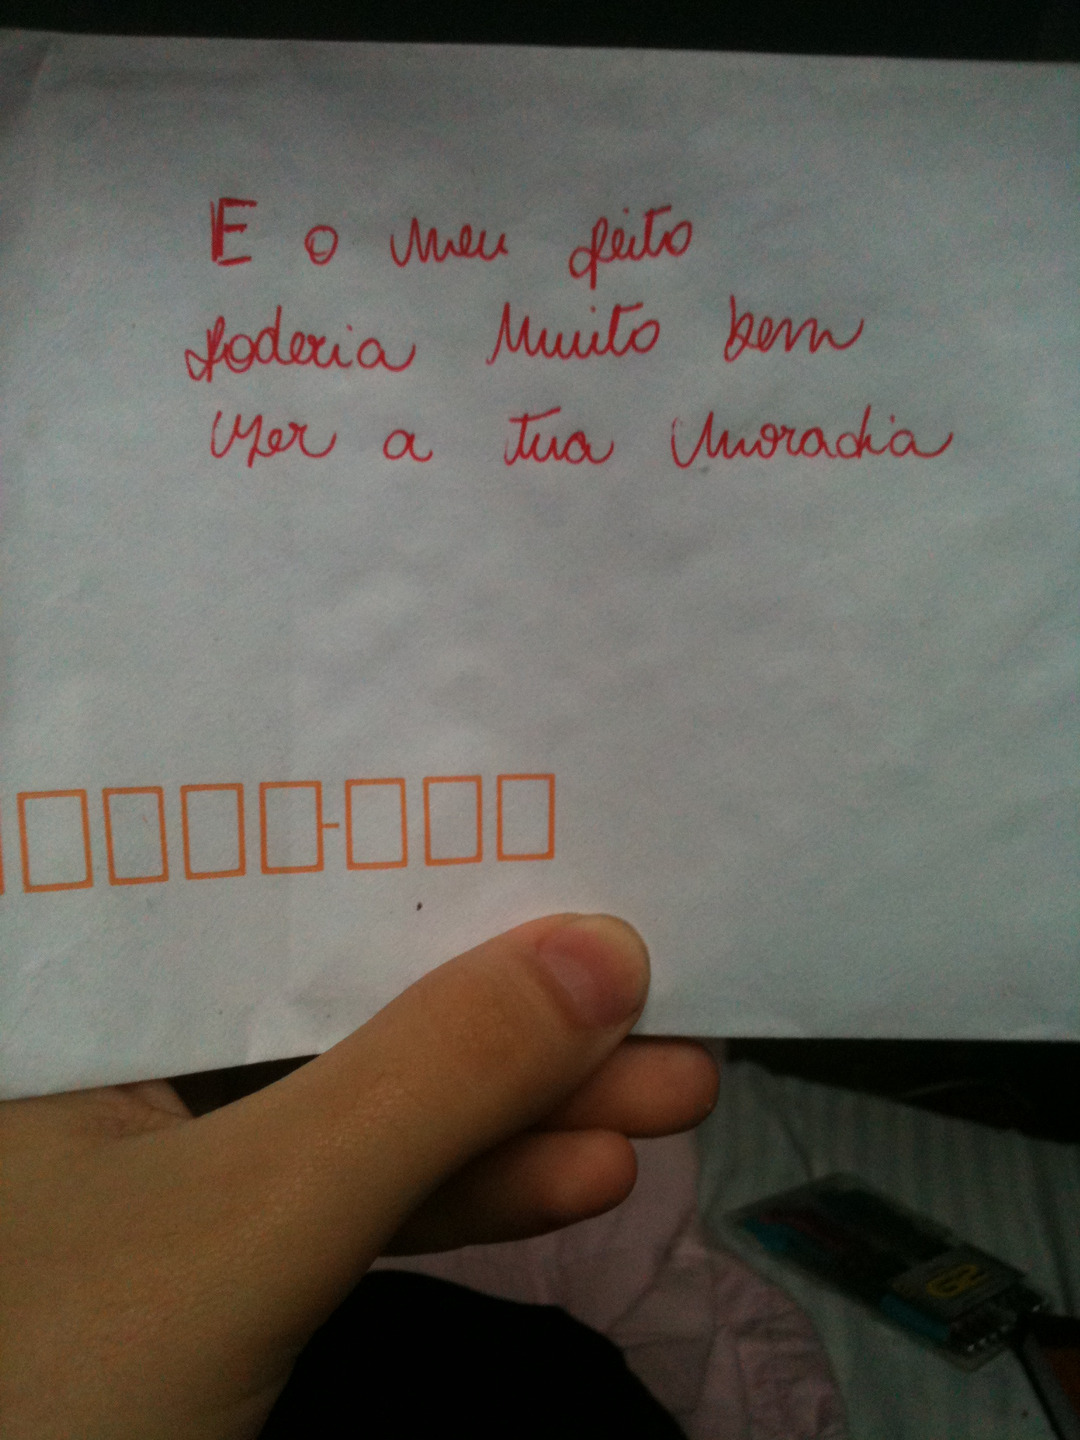 E o meu peito
poderia Muito bem
ser a tua moradia
G2